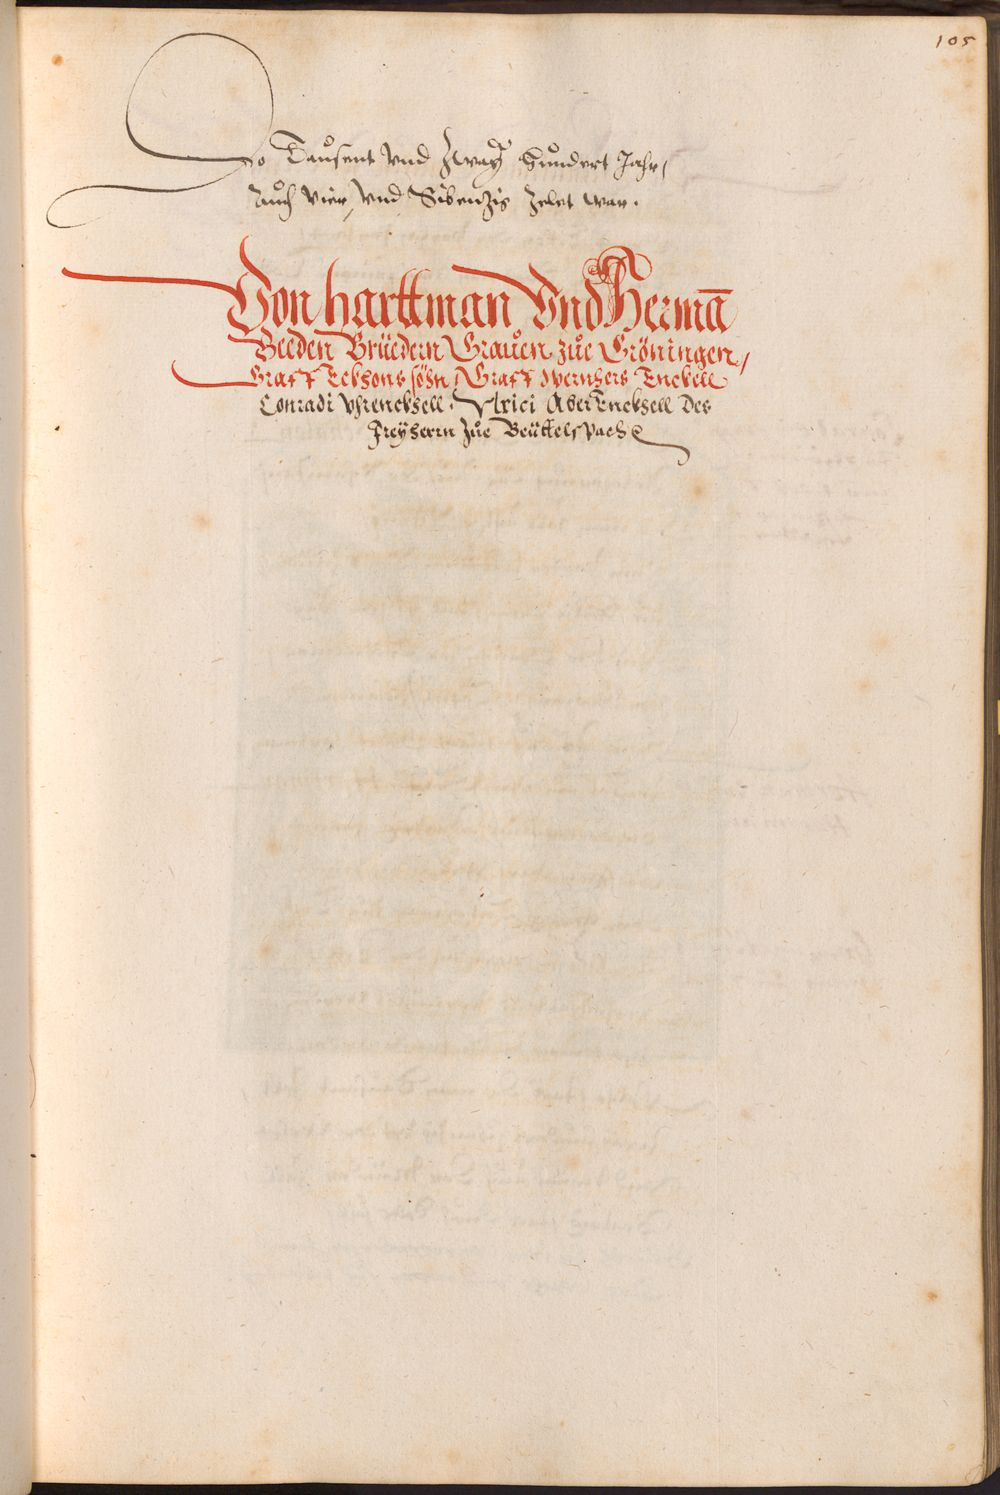 105
So Tausent vnd Zway Hundert Jahr,
Auch vier, vnd Sibenzig Zelet war.
Von Harttman Vnd Hermā
Beeden Brüedern Grauen zue Gröningen,
Graff Eckhons söhn, Graff Wernhers Enckell
Conradi Vhrenckhell. Vlrici AberEnckhell Des
Freyherrn Zue Beüttelspach